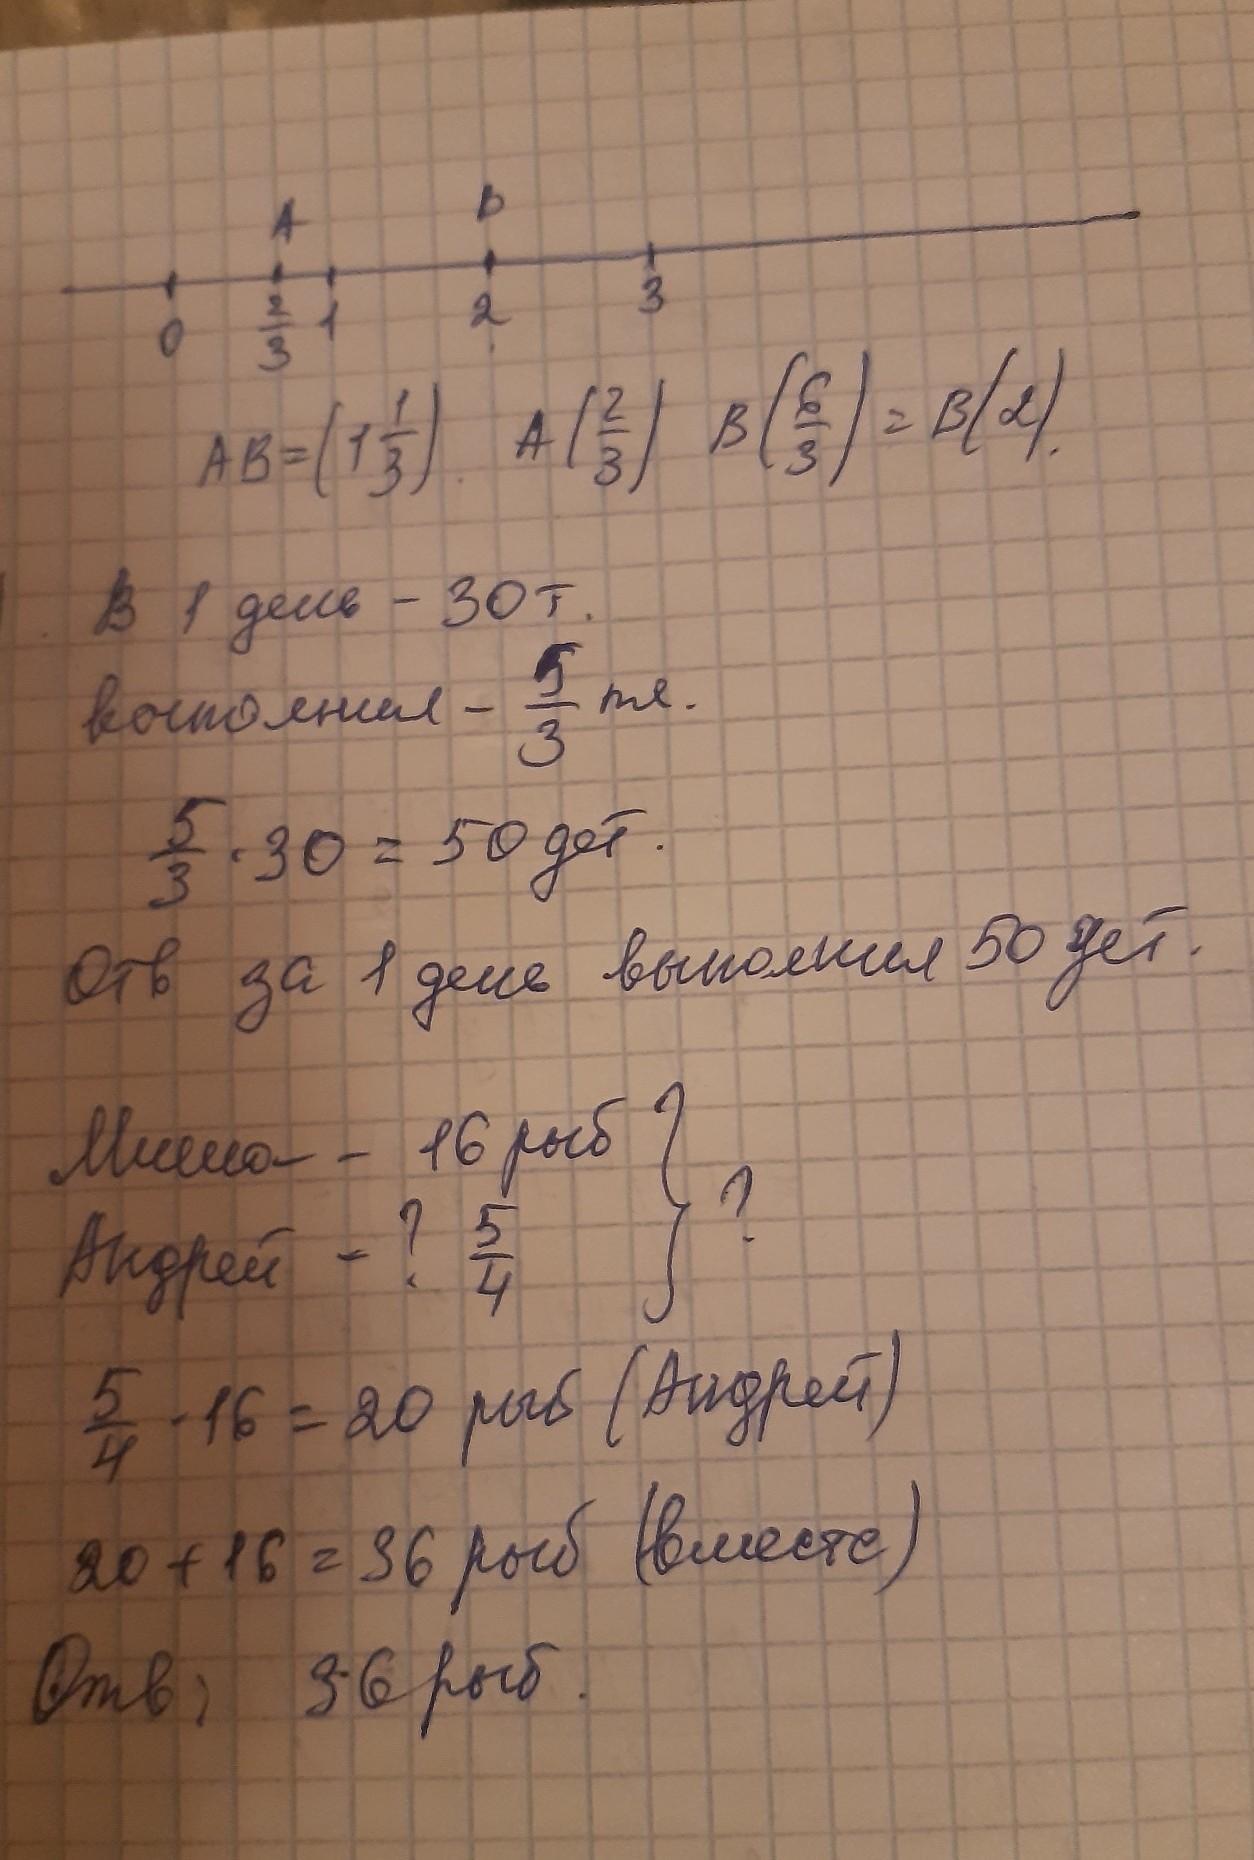 А В
0 2/3 1 2 3
AB = (1 1/3). A(2/3) B(6/3) = B(2).
В 1 день - 30 т.
выполнил - 5/3 пл.
5/3 · 30 = 50 дет.
Отв за 1 день выполнил 50 дет.
Миша - 16 рыб
Андрей - ? 5/4 } ?
5/4 · 16 = 20 рыб (Андрей)
20 + 16 = 36 рыб (вместе)
Отв: 36 рыб.